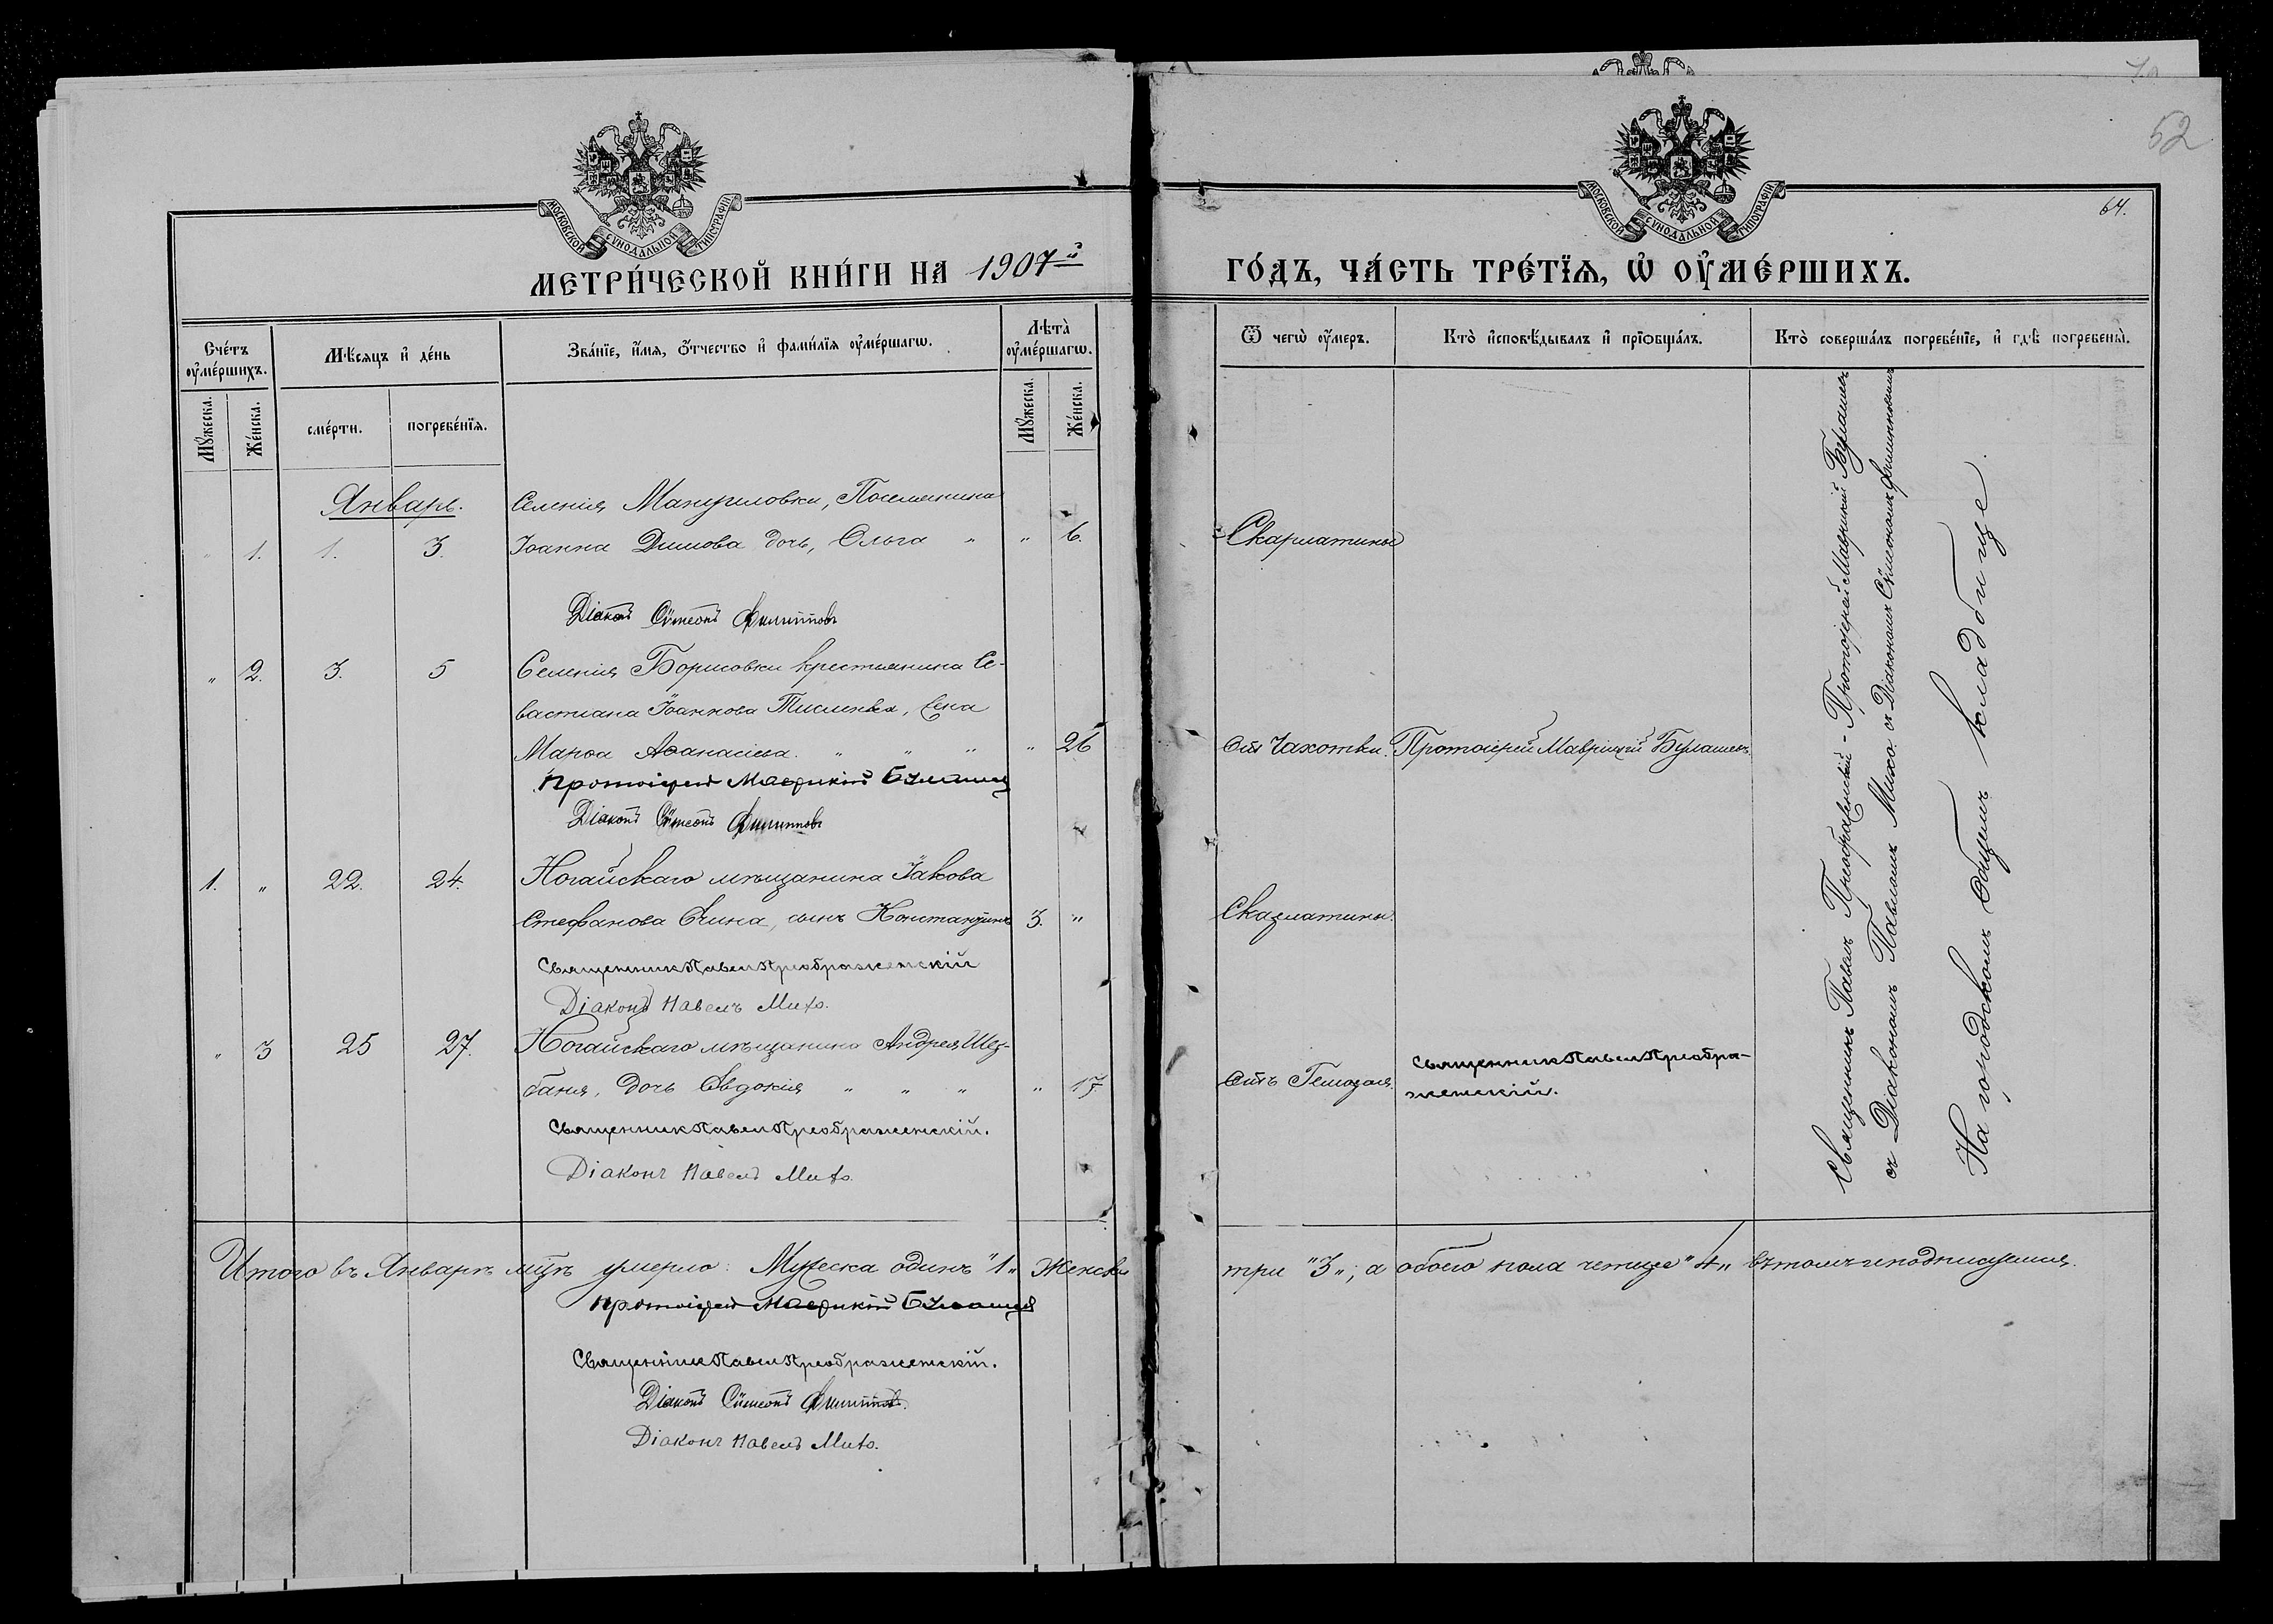 52
64.
МОСКОВСКОЙ СѴНОДАЛЬНОЙ ТИПОГРАФІИ
МОСКОВСКОЙ СѴНОДАЛЬНОЙ ТИПОГРАФІИ
МЕТРИ́ЧЕСКОЙ КНИ́ГИ НА 1907й
ГО́ДЪ, ЧА́СТЬ ТРЕ́ТЇѦ, Ѡ ОУ҆МЕ́РШИХЪ.
Сче́тъ оу҆ме́ршихъ.
Мѣ́сяцъ и҆ де́нь
Зва́нїе, и҆́мѧ, ѻ҆́тчество и҆ фами́лїѧ оу҆ме́ршагѡ.
Лѣта̀ оу҆ме́ршагѡ.
Ѿ чегѡ̀ оу҆́меръ.
Кто̀ и҆сповѣ́дывалъ и҆ прїѻбща́лъ.
Кто̀ соверша́лъ погребе́нїе, и҆ гдѣ̀ погребены̀.
Мꙋ́жеска.
Же́нска.
сме́рти.
погребе́нїѧ.
Мꙋ́жеска.
Же́нска.
Январь.
Селенія Мануиловки, Поселянина
" 1. 1. 3. Іоанна Димова дочь, Ольга " " 6. Скарлатины
Діаконъ Сѵмеонъ Филипповъ
" 2. 3. 5 Селенія Борисовки крестьянина Се-
вастіана Іоаннова жена
Марѳа Аѳанасіева. " " " " 26 Отъ Чахотки. Протоіерей Маврикій Булашевъ
Протоіерей Маврикій Булашевъ
Діаконъ Сѵмеонъ Филипповъ
1. " 22. 24. Ногайскаго мѣщанина Іакова
Стефанова сынъ Константинъ 3. " Скарлатины.
Священникъ Павелъ Преображенскій
Діаконъ Павелъ Михо.
" 3 25 27. Ногайскаго мѣщанина Андрея Шез-
баня, дочь Евдокія " " " " 17. Отъ
Священникъ Павелъ Преобра-
женскій.
Священникъ Павелъ Преображенскій.
Діаконъ Павелъ Михо.
Священникъ Павелъ Преображенскій - Протоіерей Маврикій Булашевъ
съ Діакономъ Павломъ Михо. съ Діакономъ Сѵмеономъ Филипповымъ
На городскомъ общемъ кладбище.
Итого въ Январѣ мцѣ умерло: Мужеска одинъ "1" Женска три "3", а обоего пола четыре "4" въ томъ и подписуемся.
Протоіерей Маврикій Булашевъ
Священникъ Павелъ Преображенскій.
Діаконъ Сѵмеонъ Филипповъ.
Діаконъ Павелъ Михо.